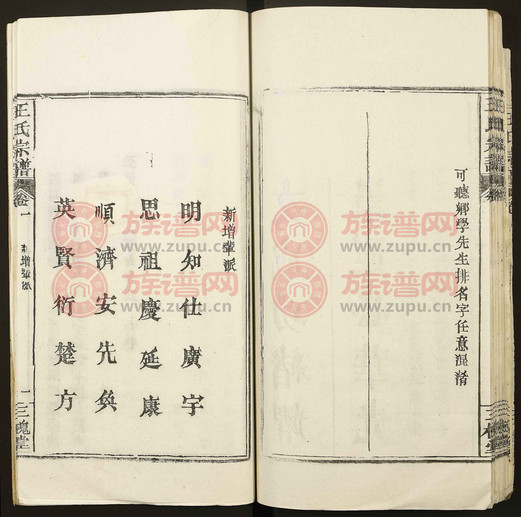 王氏宗譜
可聽鄉學先生排名字任意混淆
三槐堂
新增輩派
明知仕廣宇
思祖慶延康
順濟安先奂
英賢衍楚方
王氏宗譜
卷一
新增輩派
一
三槐堂
族谱网
www.zupu.cn
族谱网
www.zupu.cn
族谱网
www.zupu.cn
族谱网
www.zupu.cn